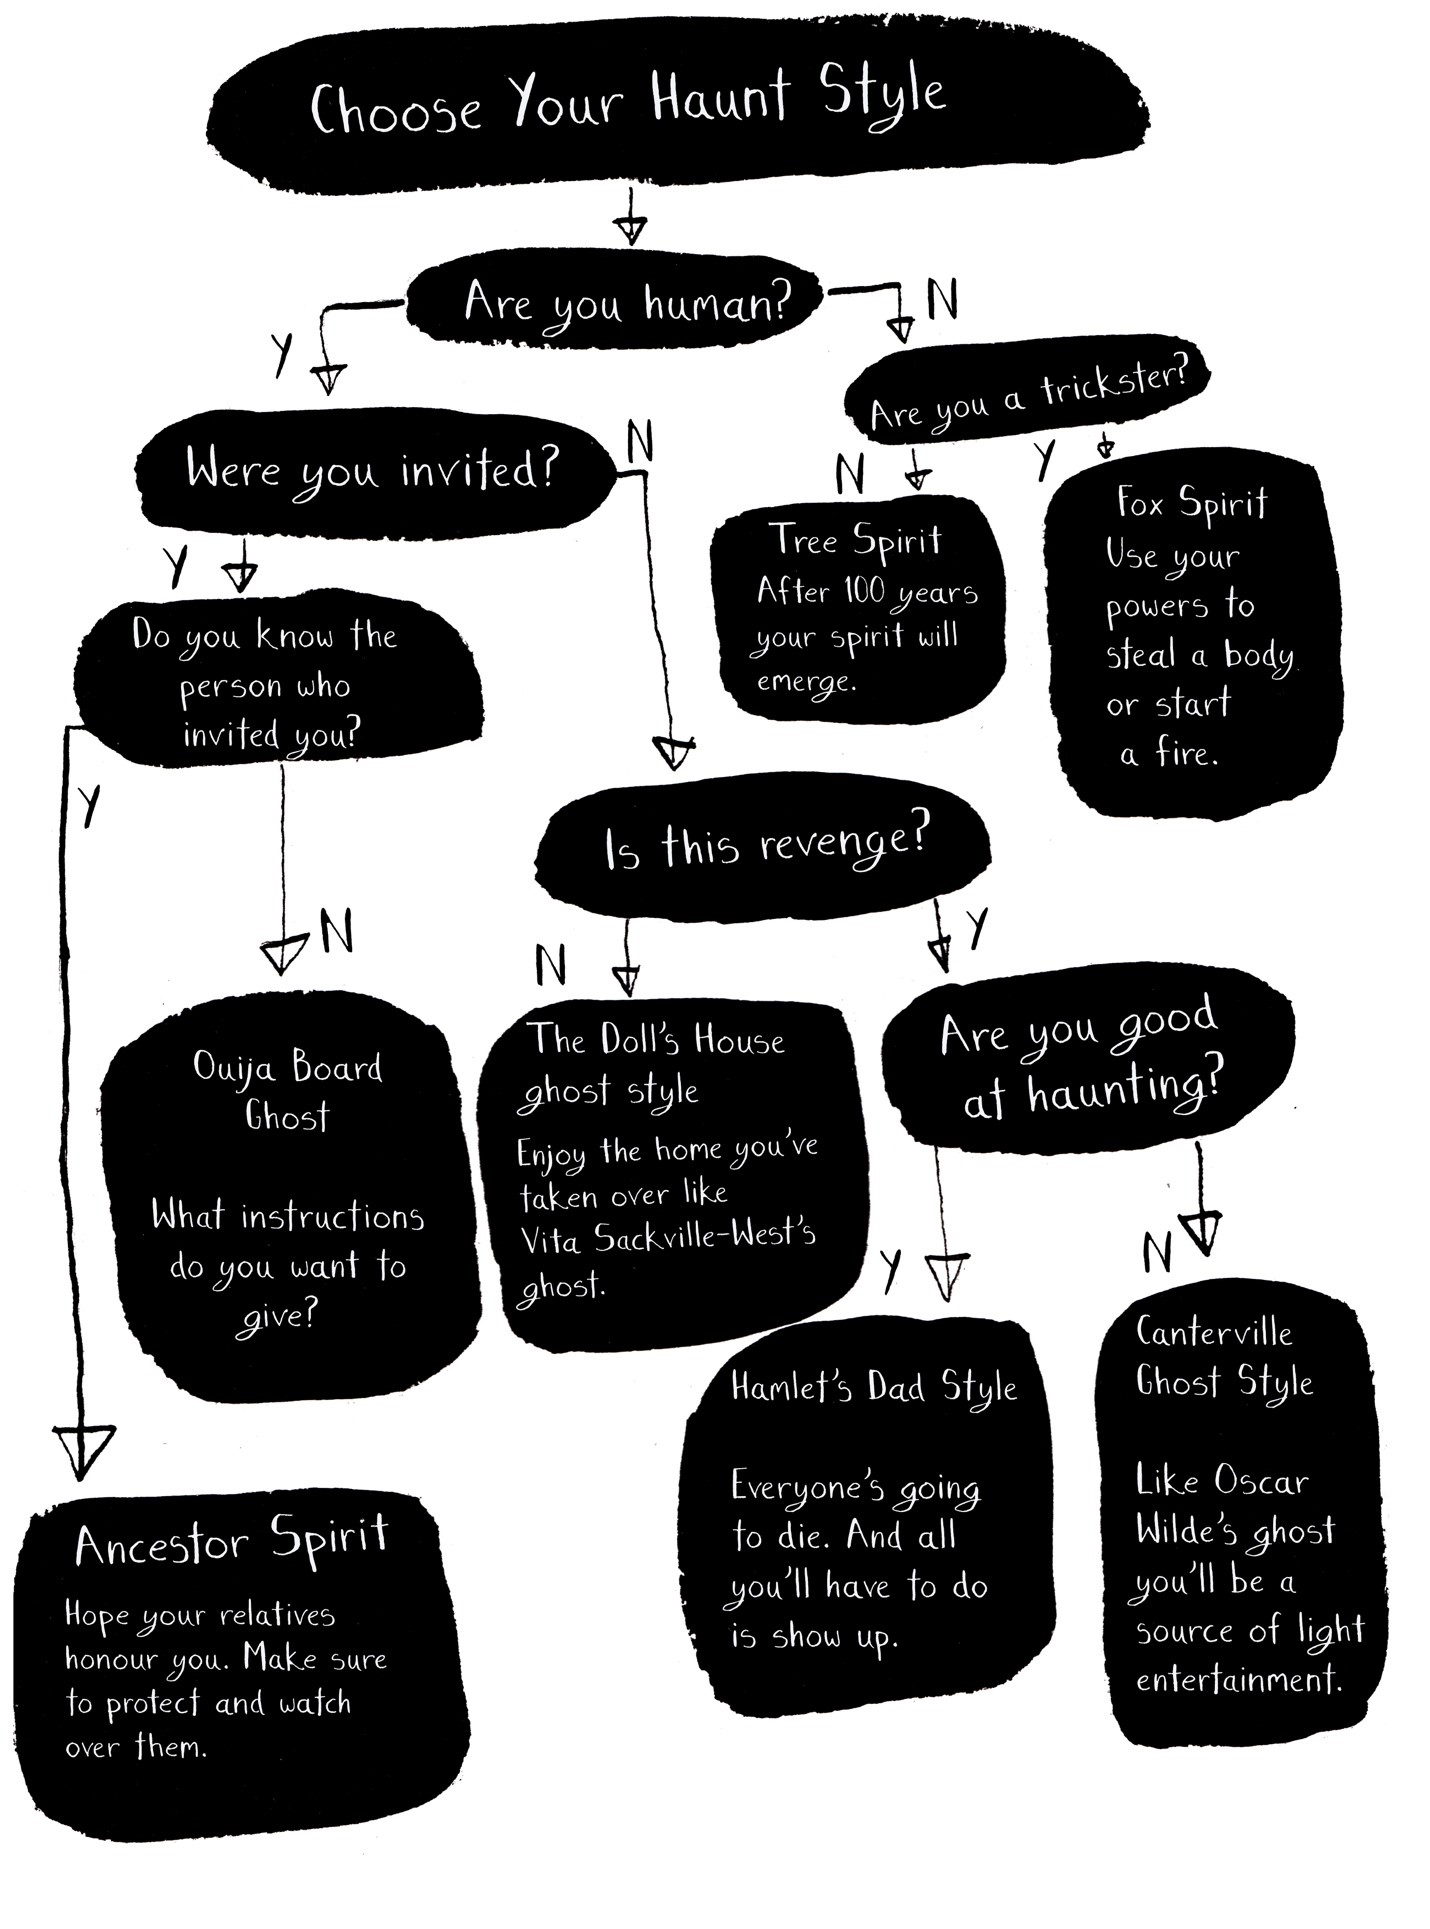 Choose Your Haunt Style
Are you human?
Y
N
Were you invited?
N
Are you a trickster?
N
Y
Tree Spirit
After 100 years
your spirit will
emerge.
Fox Spirit
Use your
powers to
steal a body
or start
a fire.
Y
Do you know the
person who
invited you?
Y
N
Is this revenge?
N
Y
Ouija Board
Ghost
What instructions
do you want to
give?
The Doll's House
ghost style
Enjoy the home you've
taken over like
Vita Sackville-West's
ghost.
Are you good
at haunting?
Y
N
Hamlet's Dad Style
Everyone's going
to die. And all
you'll have to do
is show up.
Canterville
Ghost Style
Like Oscar
Wilde's ghost
you'll be a
source of light
entertainment.
Ancestor Spirit
Hope your relatives
honour you. Make sure
to protect and watch
over them.